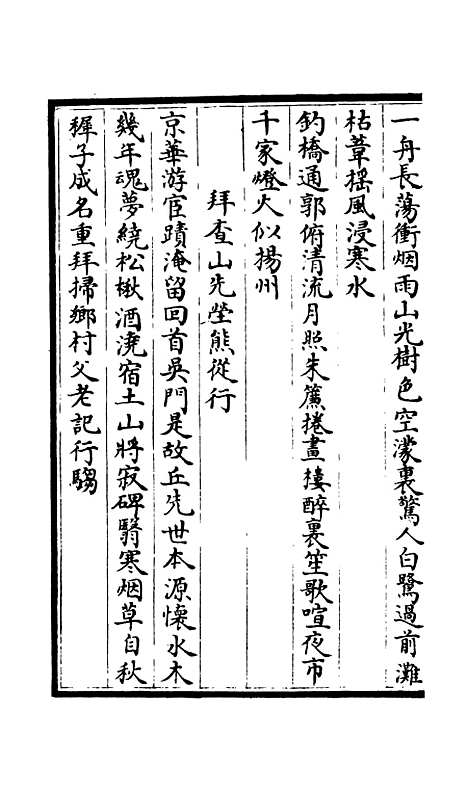 一舟長蕩衝烟雨山光樹色空濛裏驚人白鷺過前灘
枯葦搖風浸寒水
釣橋通郭俯清流月照朱簾捲畫樓醉裏笙歌喧夜市
千家燈火似揚州
拜查山先塋熊從行
京華游宦蹟淹留回首吳門是故丘先世本源懷水木
幾年魂夢繞松楸酒澆宿土山將寂碑翳寒烟草自秋
穉子成名重拜掃鄉村父老記行騶